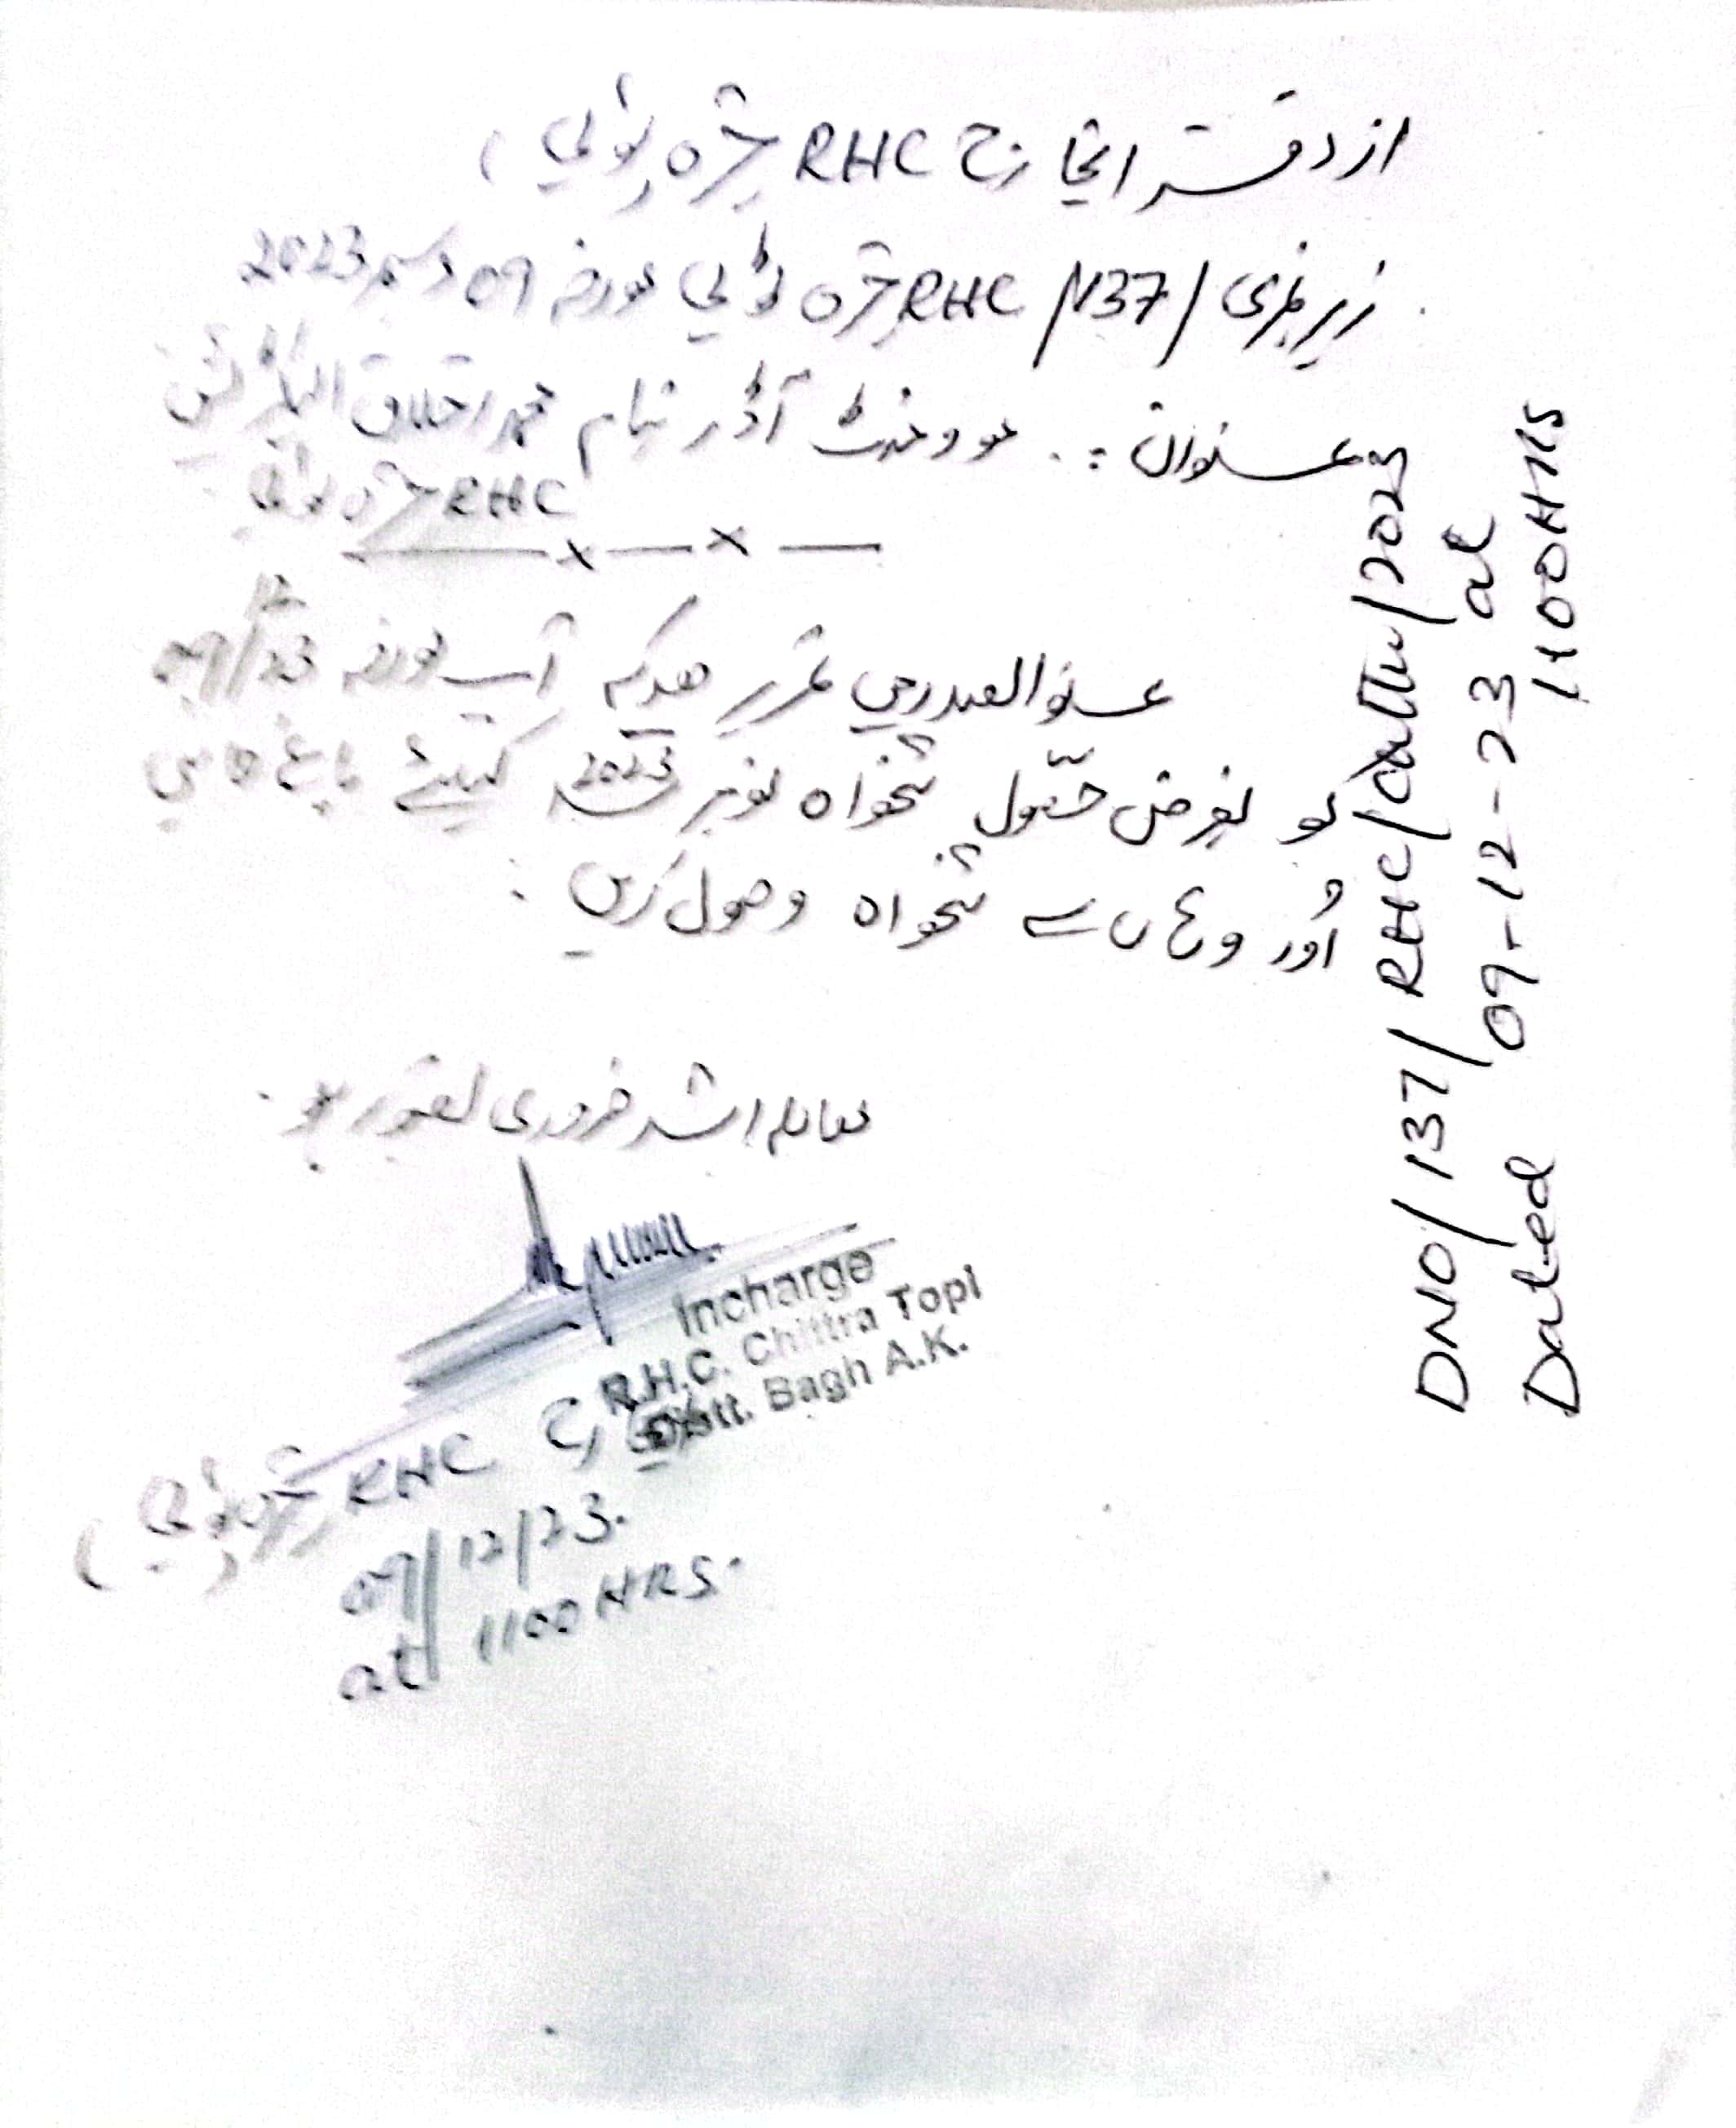 از دفتر انچارج RHC چترہ ٹوپی )
زیر نمبری / 137/ RHC چترہ ٹوپی مورخہ 09 دسمبر 2023
عنوان :۔ موومنٹ آڈر بنام محمد اخلاق
RHC چترہ ٹوپی
— x — x —
عنوان الصدر میں تحریر ھیکہ آپ مورخہ 09/12/23
کو بغرض حصول تنخواہ نومبر 2023 کیلئے باغ جائیں
اور وہاں سے تنخواہ وصول کریں :
معاملہ اشد ضروری تصور ہو .
Incharge
R.H.C. Chittra Topi
Distt. Bagh A.K.
انچارج RHC چترہ ٹوپی )
09/12/23.
at 1100 HRS.
DNO/137/RHC/ /2023
Dated 09-12-23 at
1100 HRS